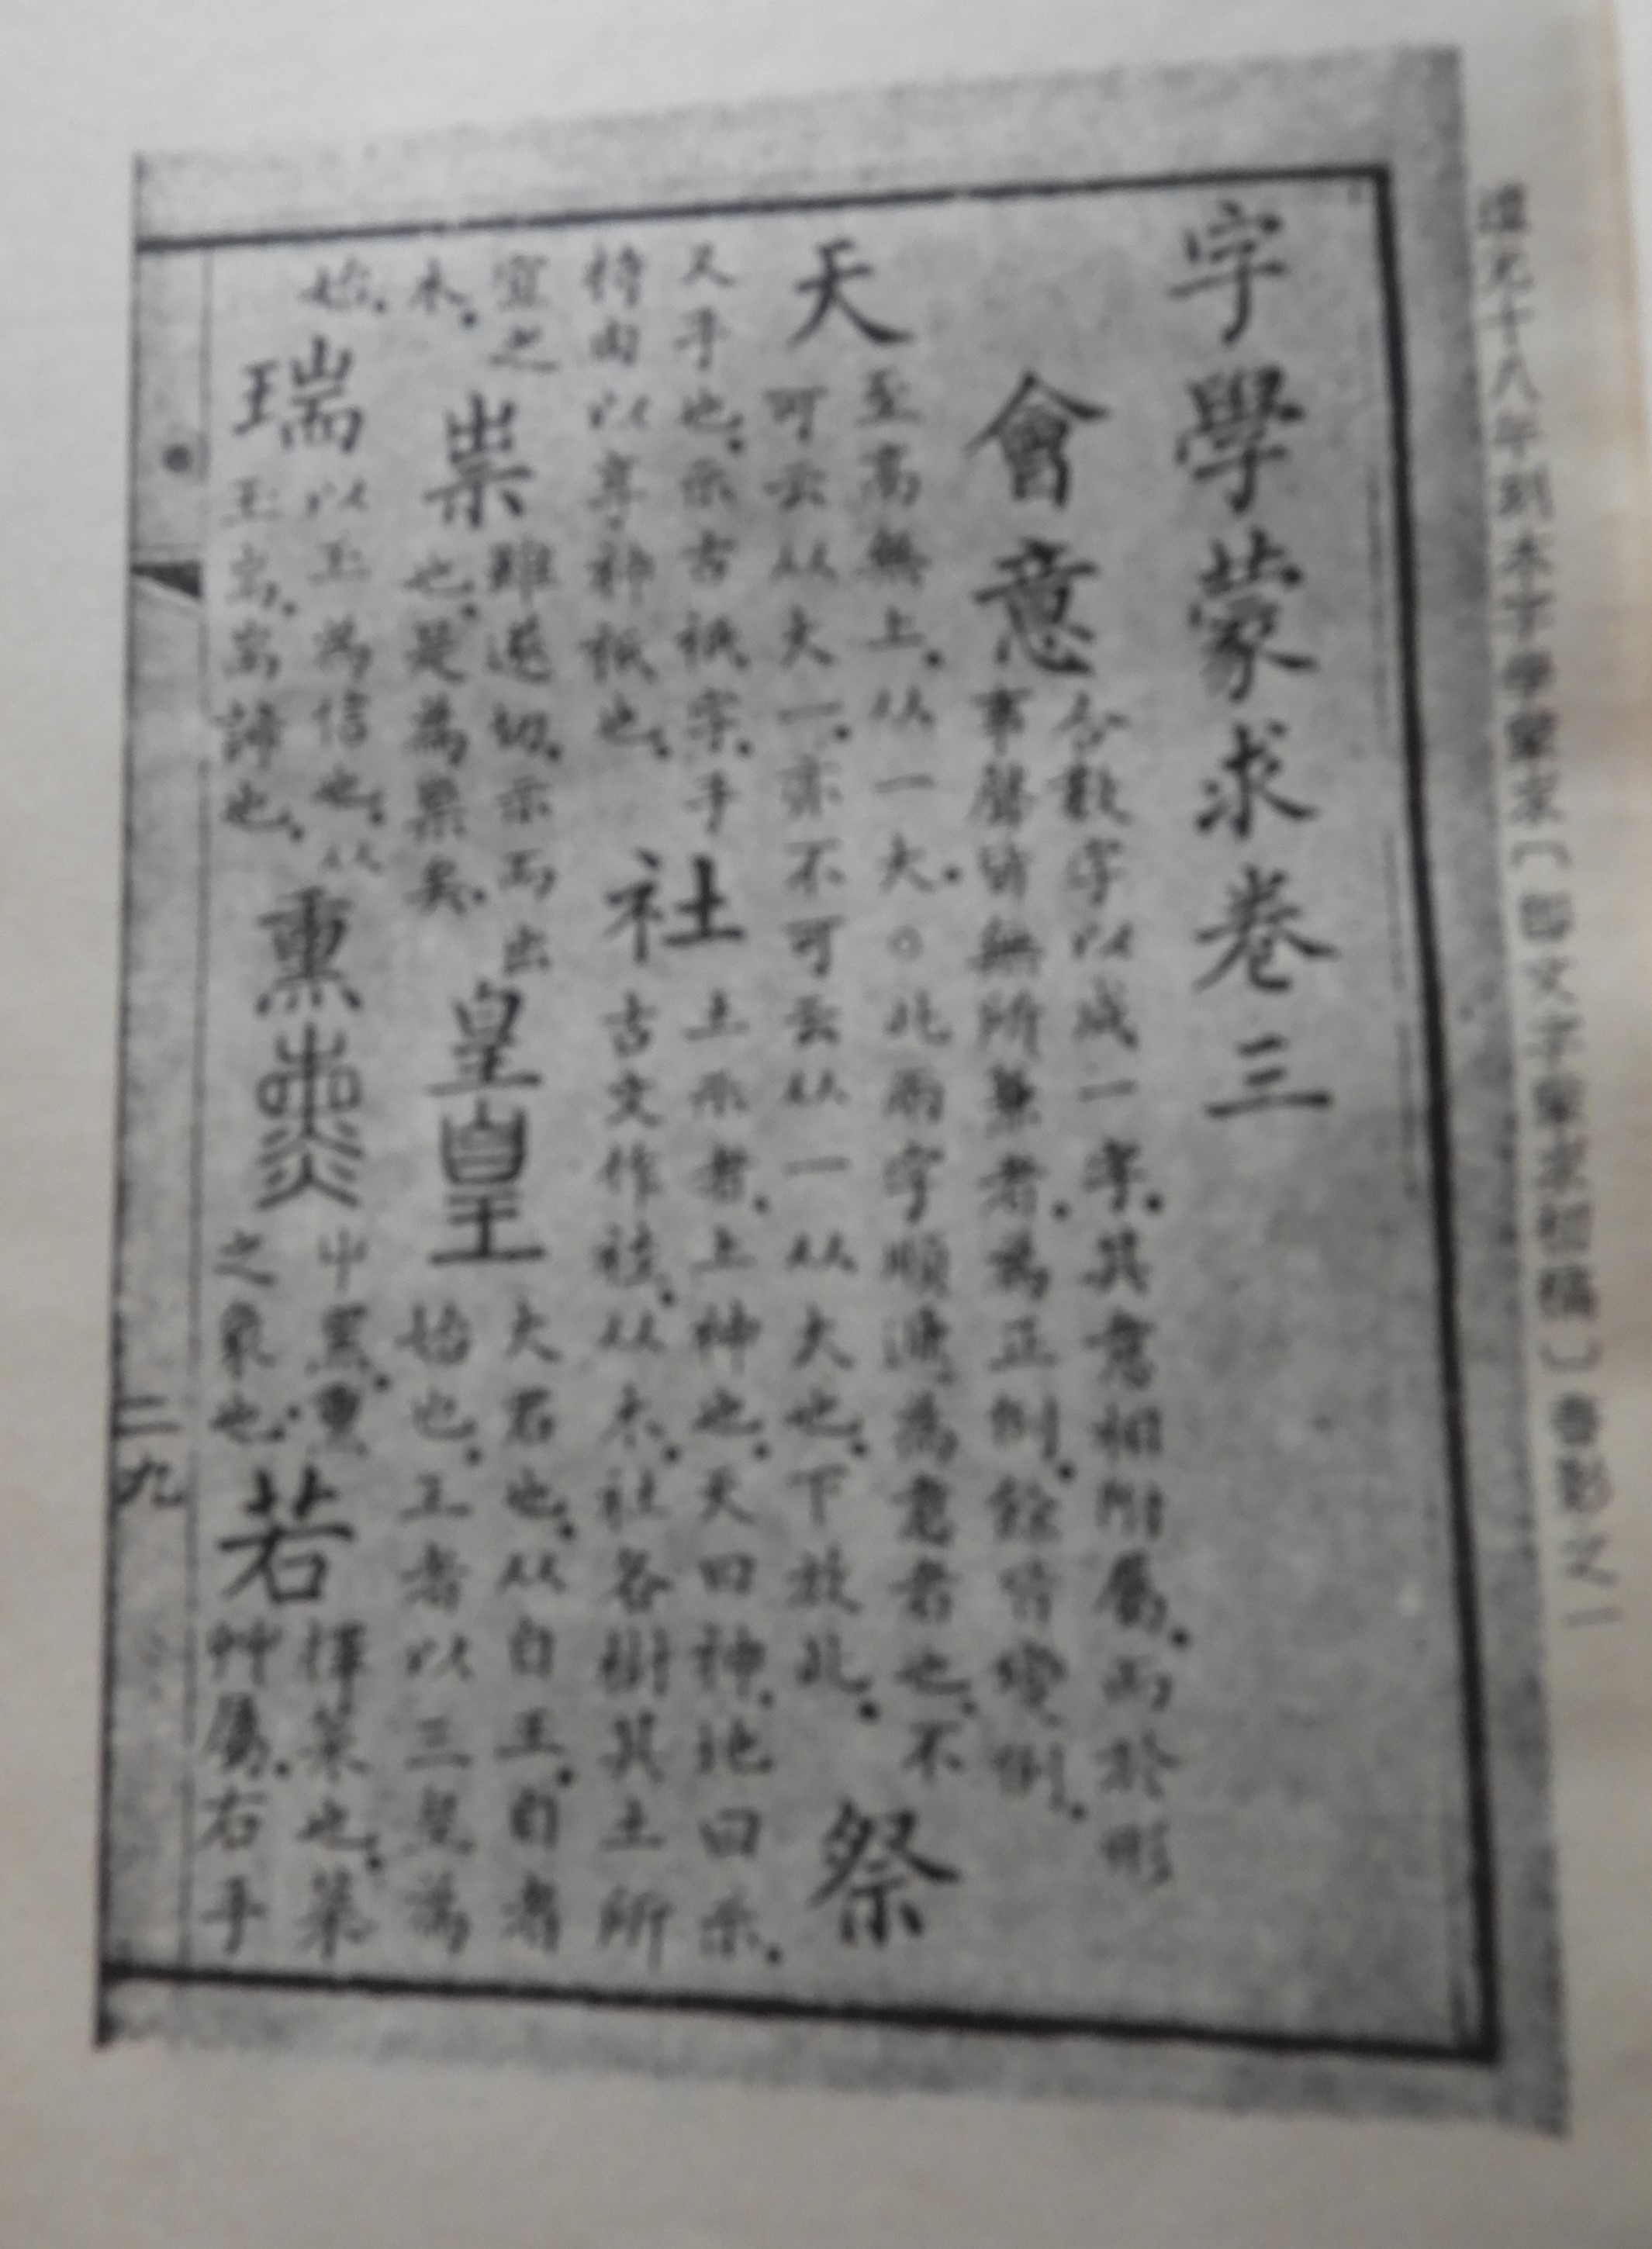 道光十八年刻本字學蒙求〔即文字蒙求初稿〕書影之一
字學蒙求卷三
會意 合數字以成一字.其意相附屬.而於形
事聲皆無所兼者.為正例.餘皆變例.
天 至高無上.从一大.○此兩字順遞為意者也.不
可云从大一.亦不可云从一从大也.下放此. 祭
又手也.示古祇字.手
持肉以享神祇也. 社 土示者.土神也.天曰神.地曰示.
古文作𥙭.从木.社各樹其土所
宜之
木. 祟 雖遂切.示而出
也.是為祟矣. 皇 皇 大君也.从自王.自者
始也.王者以三皇為
始. 瑞 以玉為信也.从
玉耑.耑諦也. 熏 屮黑.熏
之象也. 若 擇菜也.菜
艸屬.右手
二九